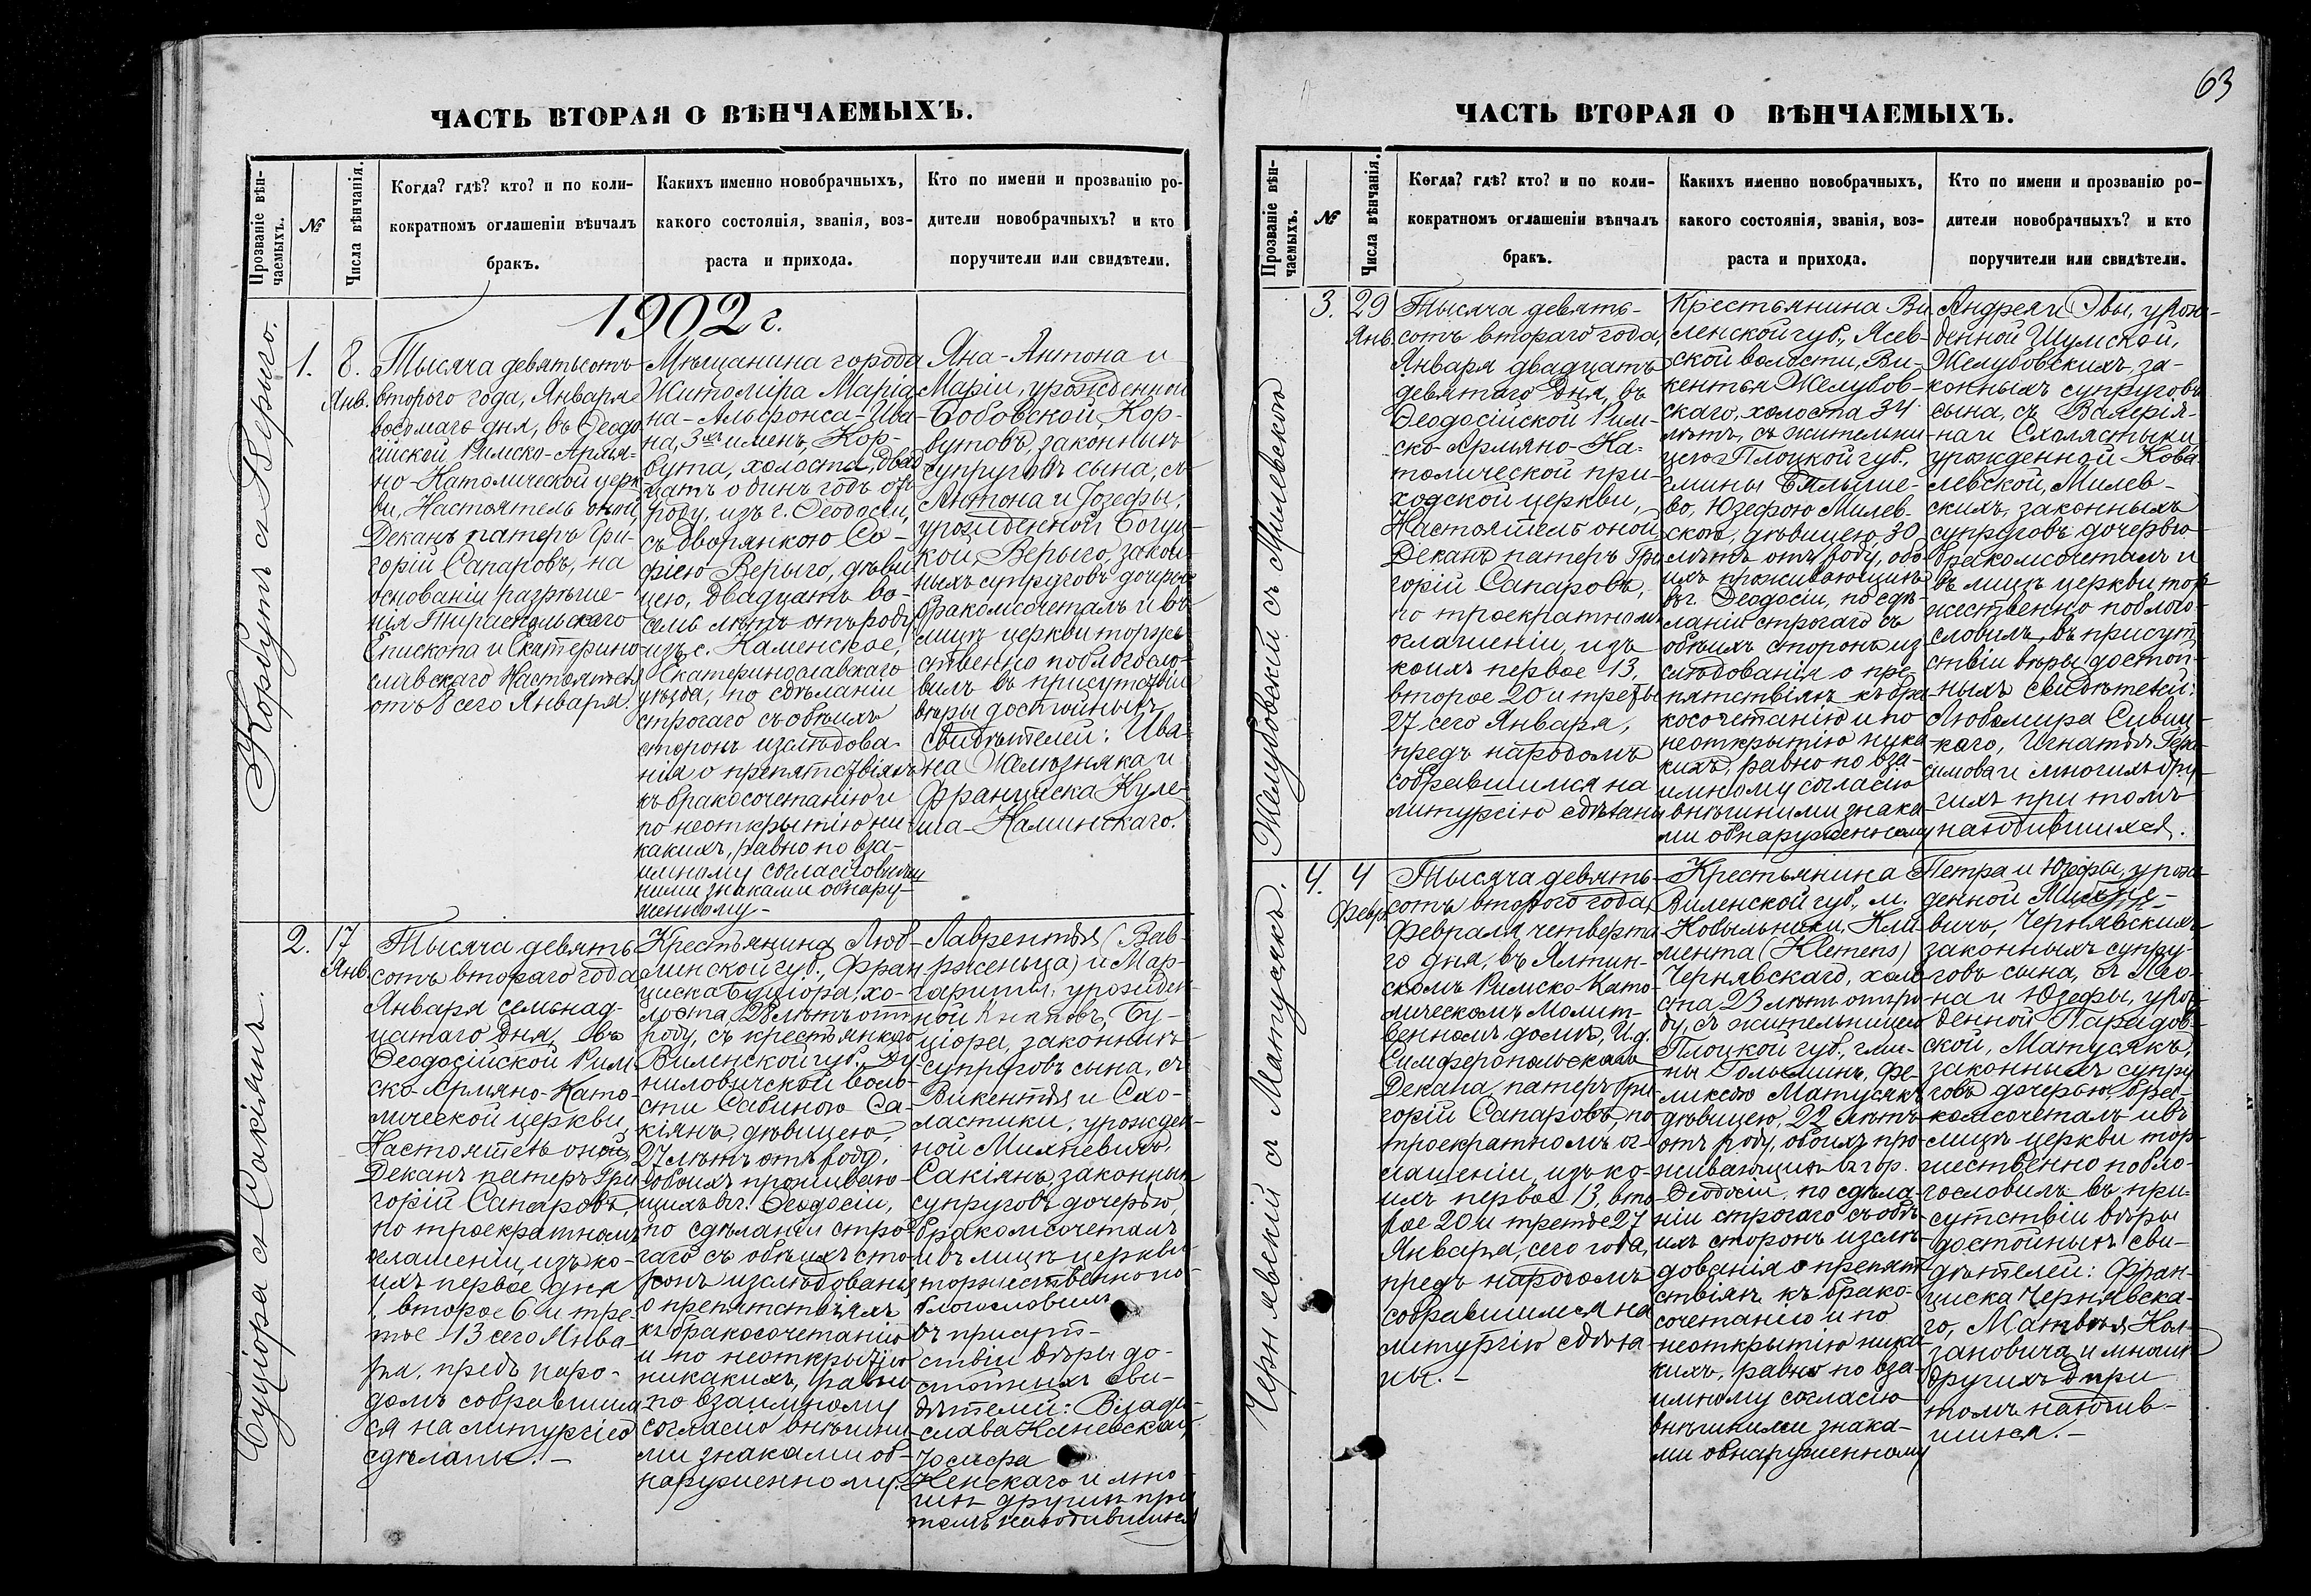 ЧАСТЬ ВТОРАЯ О ВѢНЧАЕМЫХЪ.
Прозваніе вѣн-
чаемыхъ.
№
Числа вѣнчанія.
Когда? гдѣ? кто? и по коли-
кократномъ оглашеніи вѣнчалъ
бракъ.
Какихъ именно новобрачныхъ,
какого состоянія, званія, воз-
раста и прихода.
Кто по имени и прозванію ро-
дители новобрачныхъ? и кто
поручители или свидѣтели.
1902 г.
Корбутъ съ Верыго.
1.
8.
Янв.
Тысяча девятьсотъ
второго года, Января
восьмаго дня, въ Ѳеодо
сійской Римско-Армя-
но-Католической церк
ви, Настоятель оной
Деканъ патеръ Гри-
горій Сапаровъ, на
основаніи разрѣше-
нія Тираспольскаго
Епископа и Екатерино
славскаго Настоятеля
отъ 8 сего Января.
Мѣщанина города
Житоміра Маріа
на-Альфонса-Ива
на, 3хъ именъ, Кор-
бута, холоста, двад
цать одинъ годъ отъ
роду, изъ г. Ѳеодосіи,
съ дворянкою Со-
фіею Верыго, дѣви
цею, двадцать во-
семь лѣтъ отъ роду,
изъ с. Каменское,
Екатеринославскаго
уѣзда, по сдѣланіи
строгаго съ обѣихъ
сторонъ изслѣдова-
нія о препятствіяхъ
къ бракосочетанію и
по неоткрытію ни-
какихъ, равно по вза-
имному согласію внѣш
ними знаками обнару-
женному-
Яна-Антона и
Маріи, урожденной
Бобовской, Кор-
бутовъ, законныхъ
супруговъ сына, съ
Антона и Іозефы,
урожденной Богуц
кой, Верыго, закон
ныхъ супруговъ дочерью
бракомсочеталъ и въ
лицѣ церкви торже
ственно поблагосло-
вилъ въ присутствіи
вѣры достойныхъ
свидѣтелей: Ива
на Желѣзняка и
Франциска Куле
ша-Каминскаго.
Буціора съ Сакіянъ.
2.
17
Янв.
Тысяча девять
сотъ втораго года
Января семьнад-
цатаго дня, въ
Ѳеодосійской Рим
ско-Армяно-Като-
лической церкви,
Настоятель оной,
Деканъ патеръ Гри
горій Сапаровъ,
по троекратномъ
оглашеніи, изъ ко-
ихъ первое дня
1, второе 6 и тре-
тье 13 сего Янва-
ря, предъ наро-
домъ собравшим
ся на литургію
сдѣланы.-
Крестьянина Люб-
линской губ., Фран
циска Буціора, хо-
лоста 28 лѣтъ отъ
роду, съ крестьянкою
Виленской губ., Ду
ниловичской воло-
сти Сабиною Са-
кіянъ, дѣвицею,
27 лѣтъ отъ роду,
обоихъ проживаю
щихъ въ г. Ѳеодосіи,
по сдѣланіи стро-
гаго съ обѣихъ сто-
ронъ изслѣдованія
о препятствіяхъ
къ бракосочетанію
и по неоткрытію
никакихъ, равно
по взаимному
согласію внѣшни
ми знаками об-
наруженному.
Лаврентія (Вав-
рженьца) и Мар-
гариты, урожден
ной Кнаповъ, Бу-
ціора, законныхъ
супруговъ сына, съ
Викентія и Схо-
ластики, урожден-
ной Михневичъ,
Сакіянъ, законныхъ
супруговъ дочерью,
бракомсочеталъ
и въ лицѣ церкви
торжественно по-
благословилъ
въ присут-
ствіи вѣры до-
стойныхъ сви-
дѣтелей: Влади-
слава
Іосифа
Кенскаго и мно-
гихъ другихъ при
томъ находившихся
63
ЧАСТЬ ВТОРАЯ О ВѢНЧАЕМЫХЪ.
Прозваніе вѣн-
чаемыхъ.
№
Числа вѣнчанія.
Когда? гдѣ? кто? и по коли-
кократномъ оглашеніи вѣнчалъ
бракъ.
Какихъ именно новобрачныхъ,
какого состоянія, званія, воз-
раста и прихода.
Кто по имени и прозванію ро-
дители новобрачныхъ? и кто
поручители или свидѣтели.
Желубовскій съ Милевскою
3.
29
Янв.
Тысяча девять-
сотъ втораго года,
Января двадцать
девятаго дня, въ
Ѳеодосійской Рим-
ско-Армяно-Ка-
толической при-
ходской церкви,
Настоятель оной
Деканъ патеръ Гри
горій Сапаровъ,
по троекратномъ
оглашеніи, изъ
коихъ первое 13,
второе 20 и третье
27 сего Января,
предъ народомъ
собравшимся на
литургію сдѣланы
Крестьянина Ви
ленской губ., Ясев-
ской волости, Ви-
кентія Желубов-
скаго, холоста 34
лѣтъ, съ жительни
цею Плоцкой губ.,
гмины Бяльше-
во, Юзефою Милев-
скою, дѣвицею 30
лѣтъ отъ роду, обо-
ихъ проживающихъ
въ г. Ѳеодосіи, по сдѣ-
ланіи строгаго съ
обѣихъ сторонъ из
слѣдованія о пре-
пятствіяхъ къ бра
косочетанію и по
неоткрытію ника
кихъ, равно по вза-
имному согласію
внѣшними знака
ми обнаруженному
Андрея и Эвы, урож-
денной Шумской,
Желубовскихъ, за-
конныхъ супруговъ
сына, съ Валерія-
на и Схолястыки
урожденной Кова-
левской, Милев-
скихъ, законныхъ
супруговъ дочерью
бракомсочеталъ и
въ лицѣ церкви тор
жественно поблаго-
словилъ, въ присут
ствіи вѣры достой-
ныхъ свидѣтелей:
Любомира Сивиц-
каго, Игнатія Гера-
симова и многихъ дру-
гихъ при томъ
находившихся.
Чернявскій съ Матусякъ.
4.
4
Февр.
Тысяча девять-
сотъ второго года,
Февраля, четверта
го дня, въ Ялтин-
скомъ Римско-Като-
лическомъ Молит-
венномъ домѣ, И.д.
Симферопольскаго
Декана, патеръ Гри
горій Сапаровъ, по
троекратномъ ог-
лашеніи, изъ ко-
ихъ первое 13, вто-
рое 20 и третье 27
Января, сего года,
предъ народомъ
собравшимся на
литургію сдѣла-
ны.-
Крестьянина
Виленской губ., м.
Кобыльники, Кли
мента (Klemens)
Чернявскаго, холо
ста 23 лѣтъ отъ ро
ду, съ жительницею
Плоцкой губ., гми-
ны Голыминъ, Фе-
ликсою Матусякъ
дѣвицею, 22 лѣтъ
отъ роду, обоихъ про-
живающихъ въ гор.
Ѳеодосіи, по сдѣла-
ніи строгаго съ обѣ-
ихъ сторонъ изслѣ-
дованія о препят
ствіяхъ къ брако-
сочетанію и по
неоткрытію ника
кихъ, равно по вза-
имному согласію
внѣшними знака-
ми обнаруженному
Петра и Юзефы, урож-
денной
вичъ, Чернявскихъ
законныхъ супру-
говъ сына, съ Лео-
на и Юзефы, урож
денной Парадов-
ской, Матусякъ,
законныхъ супру
говъ дочерью, бра-
комсочеталъ и въ
лицѣ церкви тор-
жественно побла-
гословилъ въ при-
сутствіи вѣры
достойныхъ сви-
дѣтелей: Фран-
циска Чернявска-
го, Матвѣя Кол-
зановича и многихъ
другихъ при
томъ находив-
шихся.-